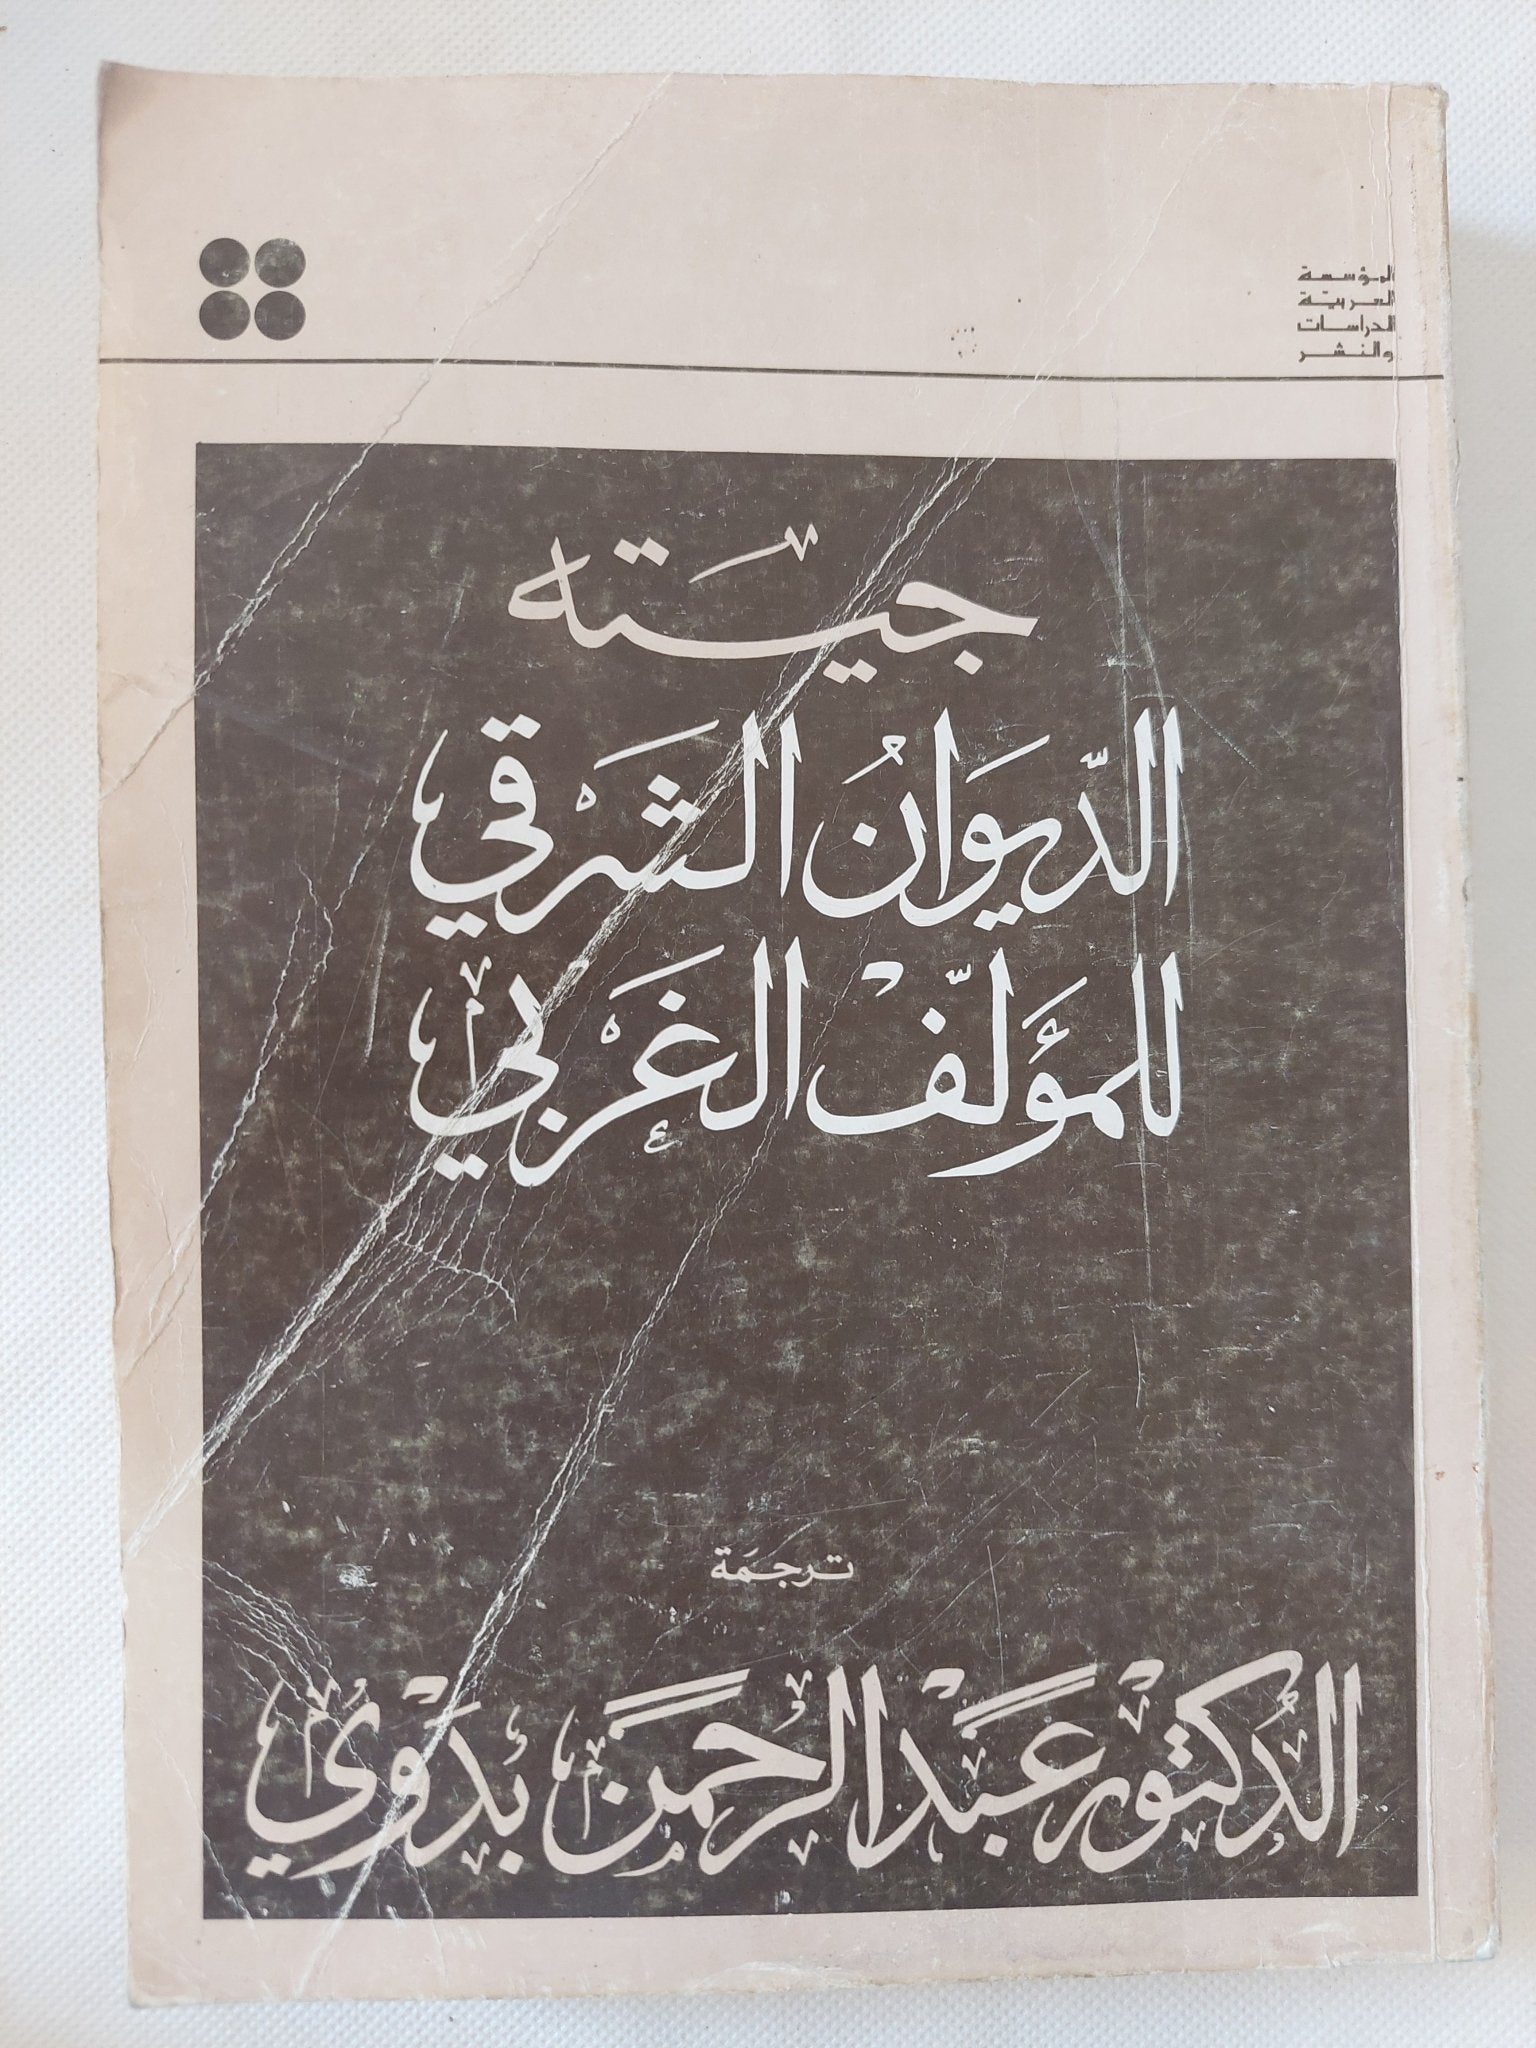 المؤسسة
العربيّة
للدراسات
والنشر
جيته
الدّيوَانُ الشَرْقي
للمؤَلّفْ الغَرْبي
ترجمَة
الدُكتوْر عَبْد الرحمَن بدَوْيُ